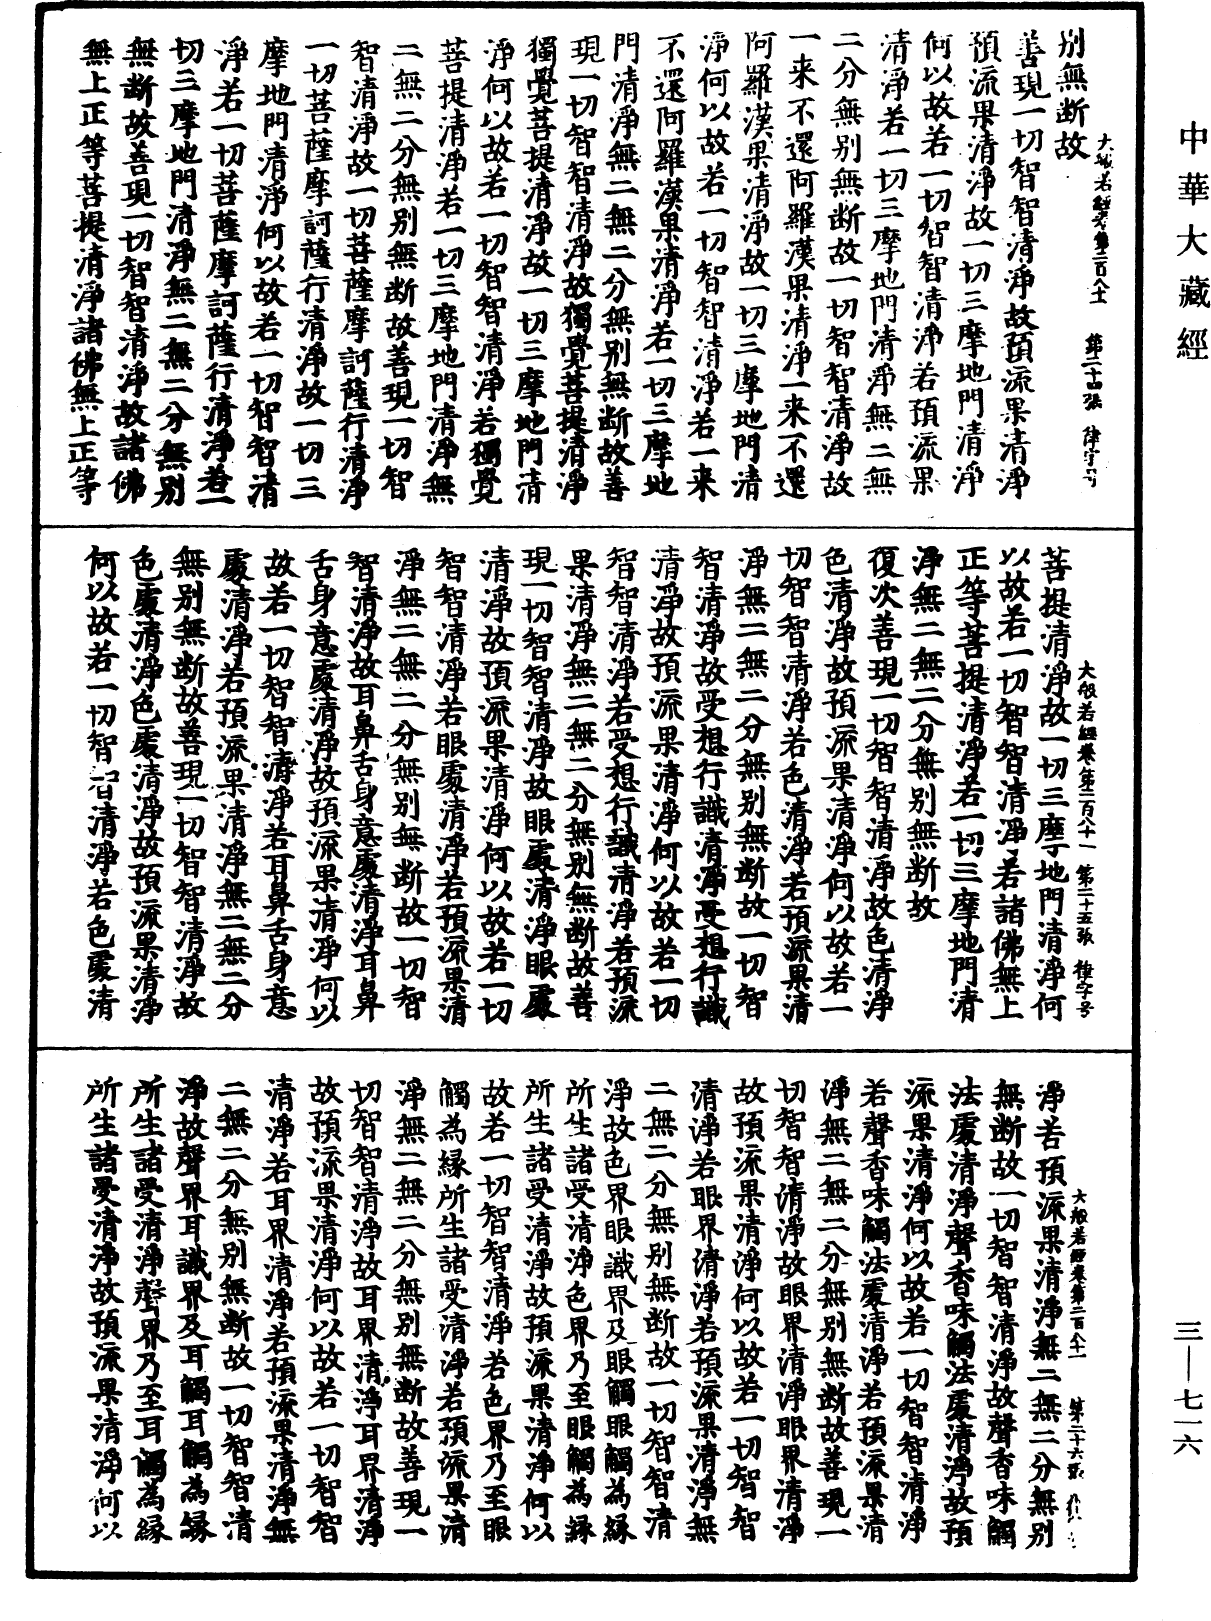 中華大藏經
別無斷故
大般若經卷第二百八十一　第二十四張　律字号
善現一切智智清淨故預流果清淨
預流果清淨故一切三摩地門清淨
何以故若一切智智清淨若預流果
清淨若一切三摩地門清淨無二無
二分無別無斷故一切智智清淨故
一來不還阿羅漢果清淨一來不還
阿羅漢果清淨故一切三摩地門清
淨何以故若一切智智清淨若一來
不還阿羅漢果清淨若一切三摩地
門清淨無二無二分無別無斷故善
現一切智智清淨故獨覺菩提清淨
獨覺菩提清淨故一切三摩地門清
淨何以故若一切智智清淨若獨覺
菩提清淨若一切三摩地門清淨無
二無二分無別無斷故善現一切智
智清淨故一切菩薩摩訶薩行清淨
一切菩薩摩訶薩行清淨故一切三
摩地門清淨何以故若一切智智清
淨若一切菩薩摩訶薩行清淨若一
切三摩地門清淨無二無二分無別
無斷故善現一切智智清淨故諸佛
無上正等菩提清淨諸佛無上正等
菩提清淨故一切三摩地門清淨何
大般若經卷第二百八十一　第二十五張　律字号
以故若一切智智清淨若諸佛無上
正等菩提清淨若一切三摩地門清
淨無二無二分無別無斷故
復次善現一切智智清淨故色清淨
色清淨故預流果清淨何以故若一
切智智清淨若色清淨若預流果清
淨無二無二分無別無斷故一切智
智清淨故受想行識清淨受想行識
清淨故預流果清淨何以故若一切
智智清淨若受想行識清淨若預流
果清淨無二無二分無別無斷故善
現一切智智清淨故眼處清淨眼處
清淨故預流果清淨何以故若一切
智智清淨若眼處清淨若預流果清
淨無二無二分無別無斷故一切智
智清淨故耳鼻舌身意處清淨耳鼻
舌身意處清淨故預流果清淨何以
故若一切智智清淨若耳鼻舌身意
處清淨若預流果清淨無二無二分
無別無斷故善現一切智智清淨故
色處清淨色處清淨故預流果清淨
何以故若一切智智清淨若色處清
淨若預流果清淨無二無二分無別
大般若經卷第二百八十一　第二十六張
無斷故一切智智清淨故聲香味觸
法處清淨聲香味觸法處清淨故預
流果清淨何以故若一切智智清淨
若聲香味觸法處清淨若預流果清
淨無二無二分無別無斷故善現一
切智智清淨故眼界清淨眼界清淨
故預流果清淨何以故若一切智智
清淨若眼界清淨若預流果清淨無
二無二分無別無斷故一切智智清
淨故色界眼識界及眼觸眼觸為緣
所生諸受清淨色界乃至眼觸為緣
所生諸受清淨故預流果清淨何以
故若一切智智清淨若色界乃至眼
觸為緣所生諸受清淨若預流果清
淨無二無二分無別無斷故善現一
切智智清淨故耳界清淨耳界清淨
故預流果清淨何以故若一切智智
清淨若耳界清淨若預流果清淨無
二無二分無別無斷故一切智智清
淨故聲界耳識界及耳觸耳觸為緣
所生諸受清淨聲界乃至耳觸為緣
所生諸受清淨故預流果清淨何以
三—七一六